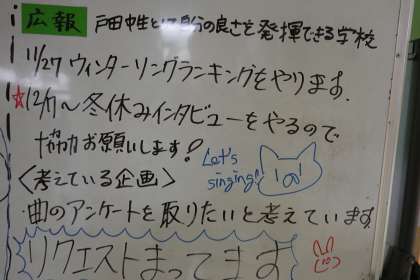 広報 戸田中生として自分の良さを発揮できる学校
11/27 ウィンターソングランキングをやります.
☆12/1～冬休みインタビューをやるので
協力お願いします!
Let's
singing!
<考えている企画>
・曲のアンケートを取りたいと考えています
リクエストまってます